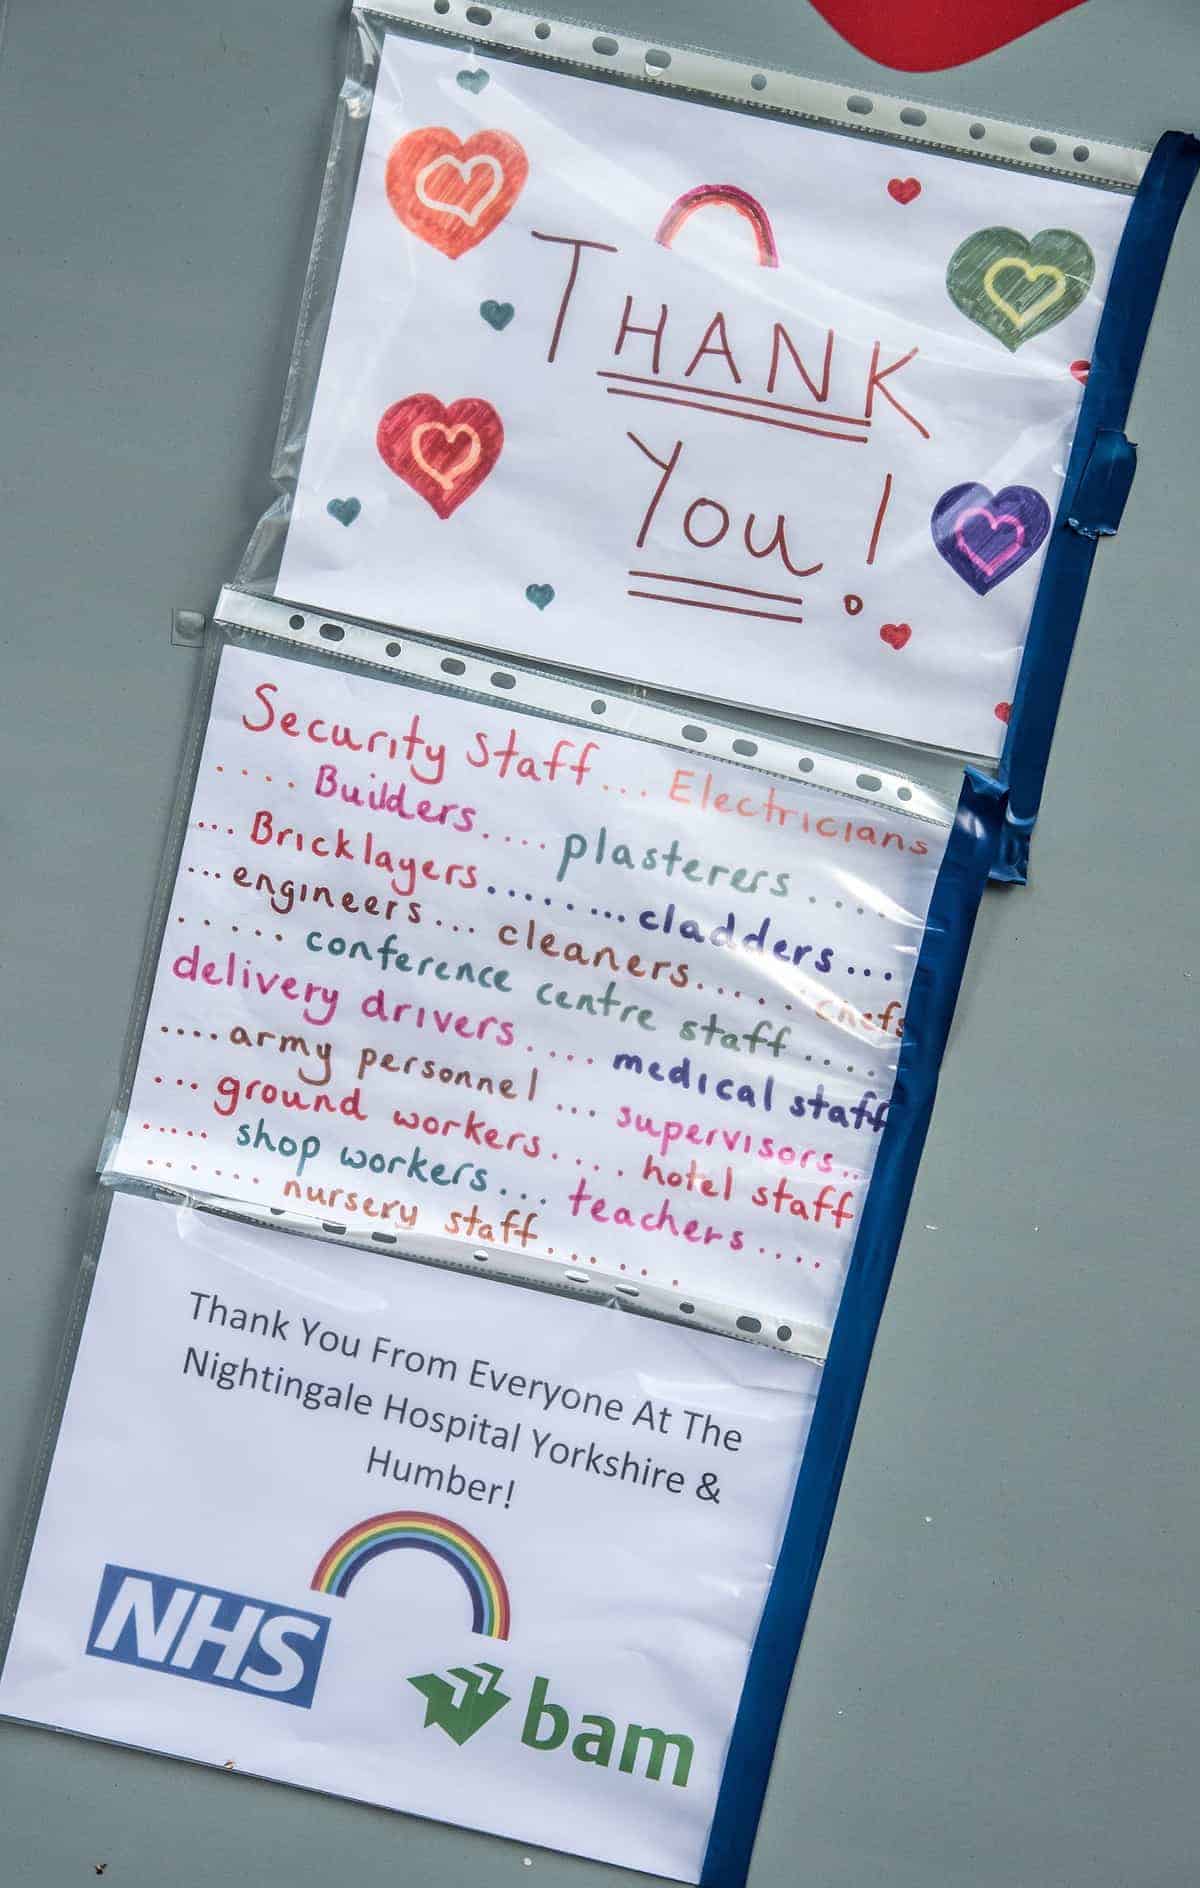 THANK
You!
Security Staff... Electricians
.... Builders.... plasterers ....
... Bricklayers........ cladders...
... engineers... cleaners..... chefs
..... conference centre staff ....
delivery drivers.... medical staff
.... army personnel ... supervisors..
... ground workers.... hotel staff
..... shop workers... teachers....
...... nursery staff......
Thank You From Everyone At The
Nightingale Hospital Yorkshire &
Humber!
NHS
bam